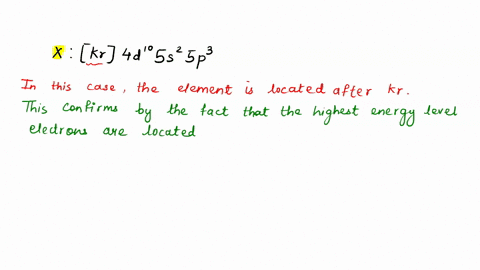 X : [kr] 4d¹⁰ 5s² 5p³
In this case, the element is located after kr.
This confirms by the fact that the highest energy level
electrons are located